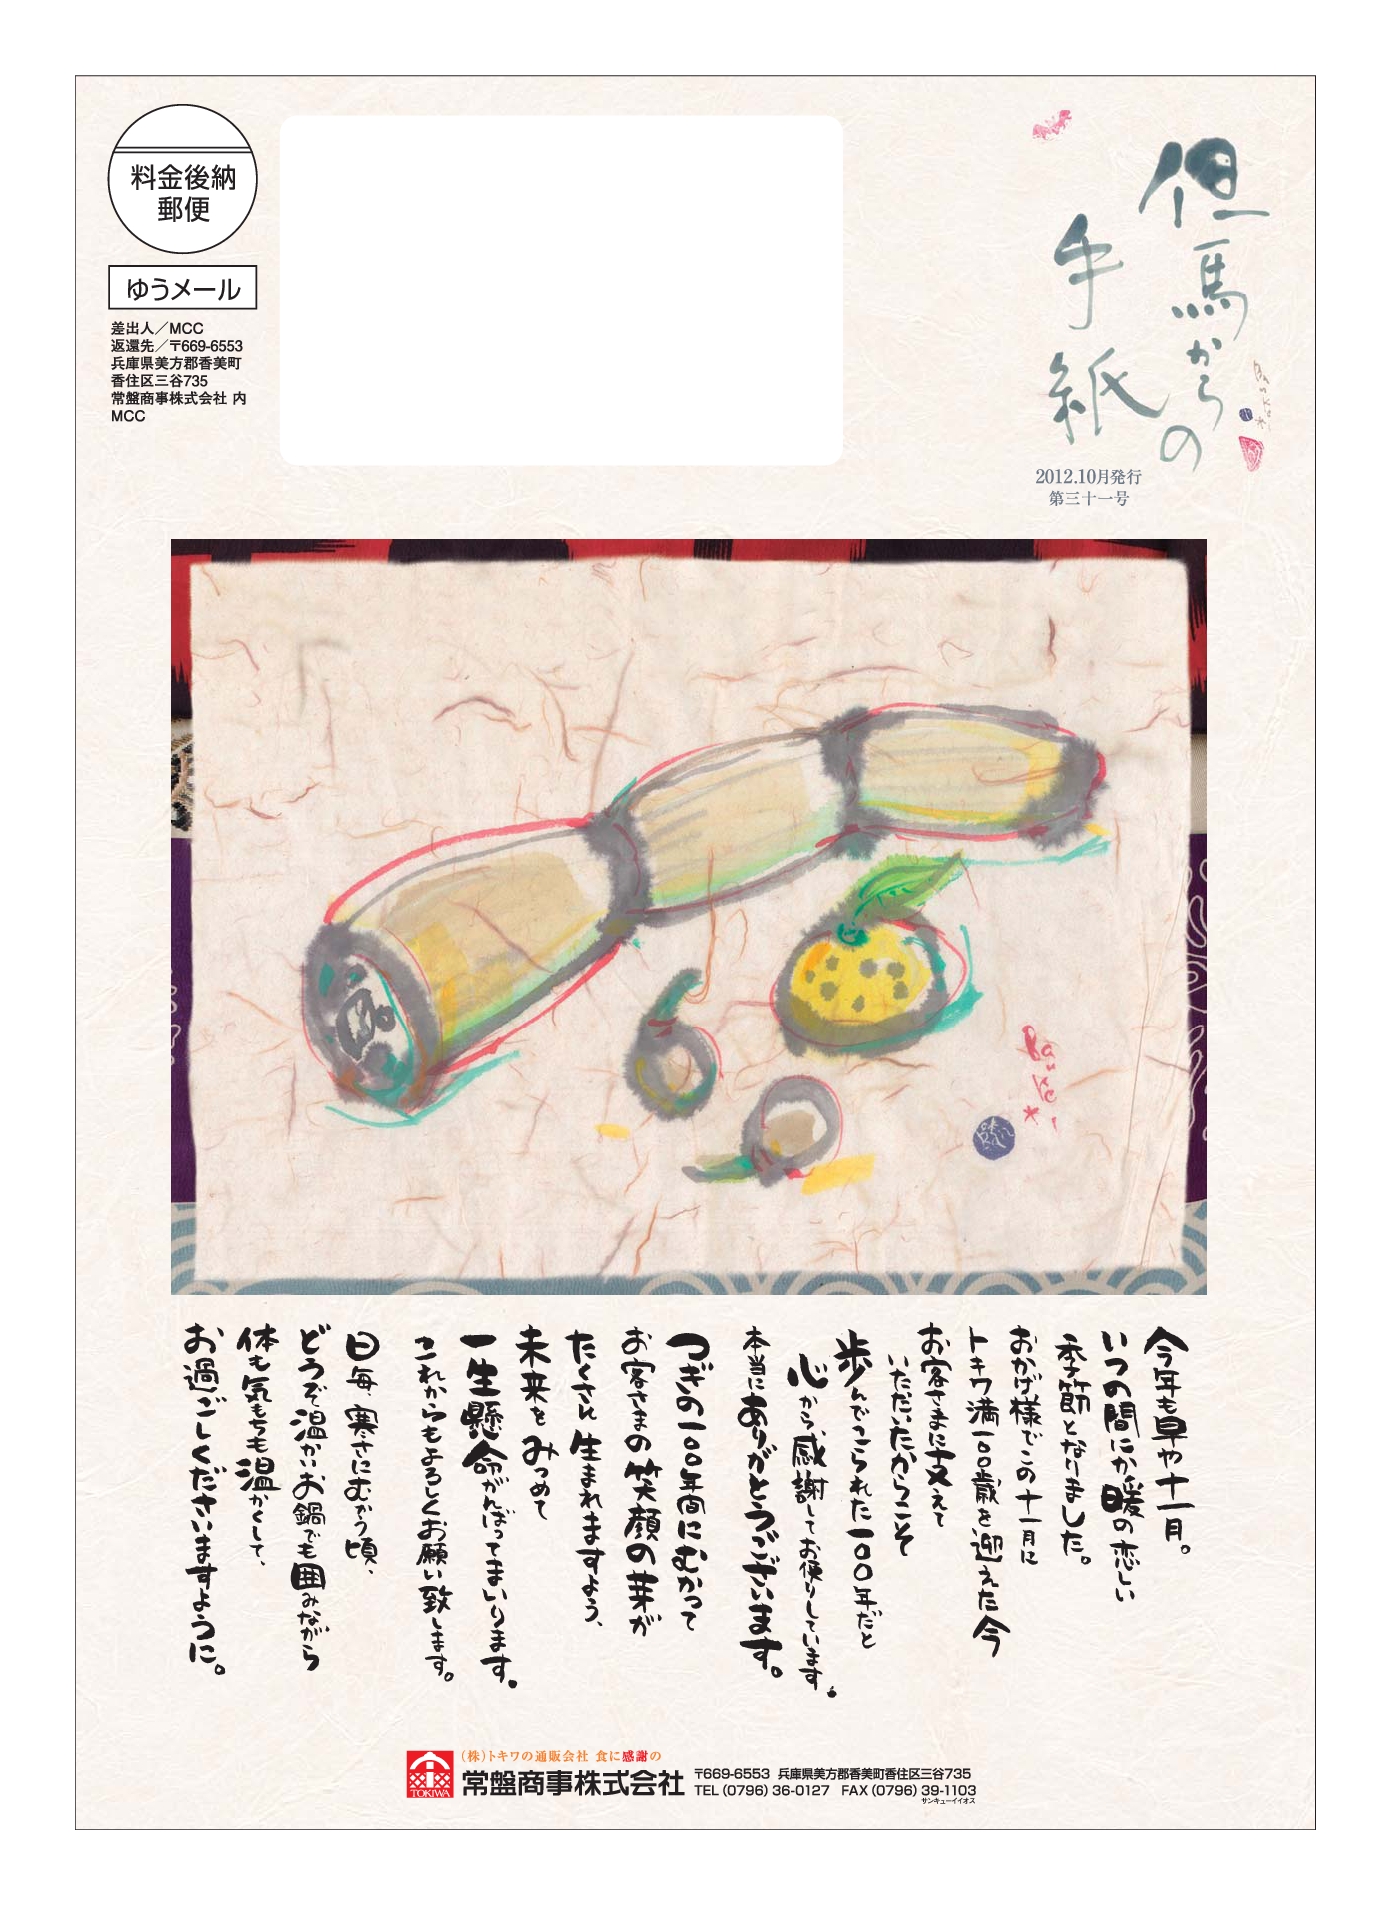 料金後納
郵便
ゆうメール
差出人／MCC
返還先／〒669-6553
兵庫県美方郡香美町
香住区三谷735
常盤商事株式会社 内
MCC
但馬からの
手紙
2012.10月発行
第三十一号
今年も早や十一月。
いつの間にか暖の恋しい
季節となりました。
おかげ様でこの十一月に
トキワ満一〇〇歳を迎えた今
お客さまに支えて
いただいたからこそ
歩んでこられた一〇〇年だと
心から感謝してお便りしています。
本当にありがとうございます。
つぎの一〇〇年間にむかって
お客さまの笑顔の芽が
たくさん生まれますよう、
未来をみつめて
一生懸命がんばってまいります。
これからもよろしくお願い致します。
日毎、寒さにむかう頃、
どうぞ温かいお鍋でも囲みながら
体も気もちも温かくして、
お過ごしくださいますように。
TOKIWA
（株）トキワの通販会社 食に感謝の
常盤商事株式会社
〒669-6553 兵庫県美方郡香美町香住区三谷735
TEL（0796）36-0127 FAX（0796）39-1103
サンキューイイオス